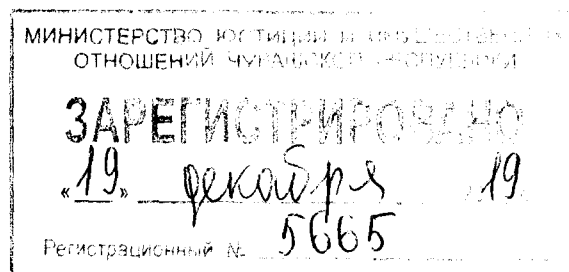 МИНИСТЕРСТВО ЮСТИЦИИ И ИМУЩЕСТВЕННЫХ
ОТНОШЕНИЙ ЧУВАШСКОЙ РЕСПУБЛИКИ
ЗАРЕГИСТРИРОВАНО
«19» декабря 19
Регистрационный № 5665